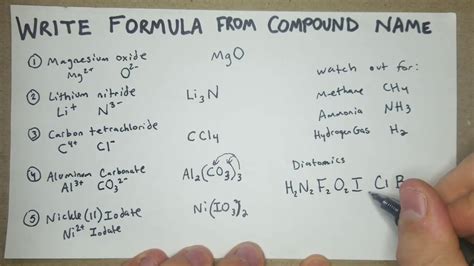 WRITE FORMULA FROM COMPOUND NAME
① Magnesium oxide MgO
Mg²⁺ O²⁻
② Lithium nitride Li₃N
Li⁺ N³⁻
③ Carbon tetrachloride CCl₄
C⁴⁺ Cl⁻
④ Aluminum Carbonate Al₂(CO₃)₃
Al³⁺ CO₃²⁻
⑤ Nickle(II) Iodate Ni(IO₃)₂
Ni²⁺ Iodate
Watch out for:
Methane CH₄
Ammonia NH₃
Hydrogen Gas H₂
Diatomics
H₂ N₂ F₂ O₂ I Cl B